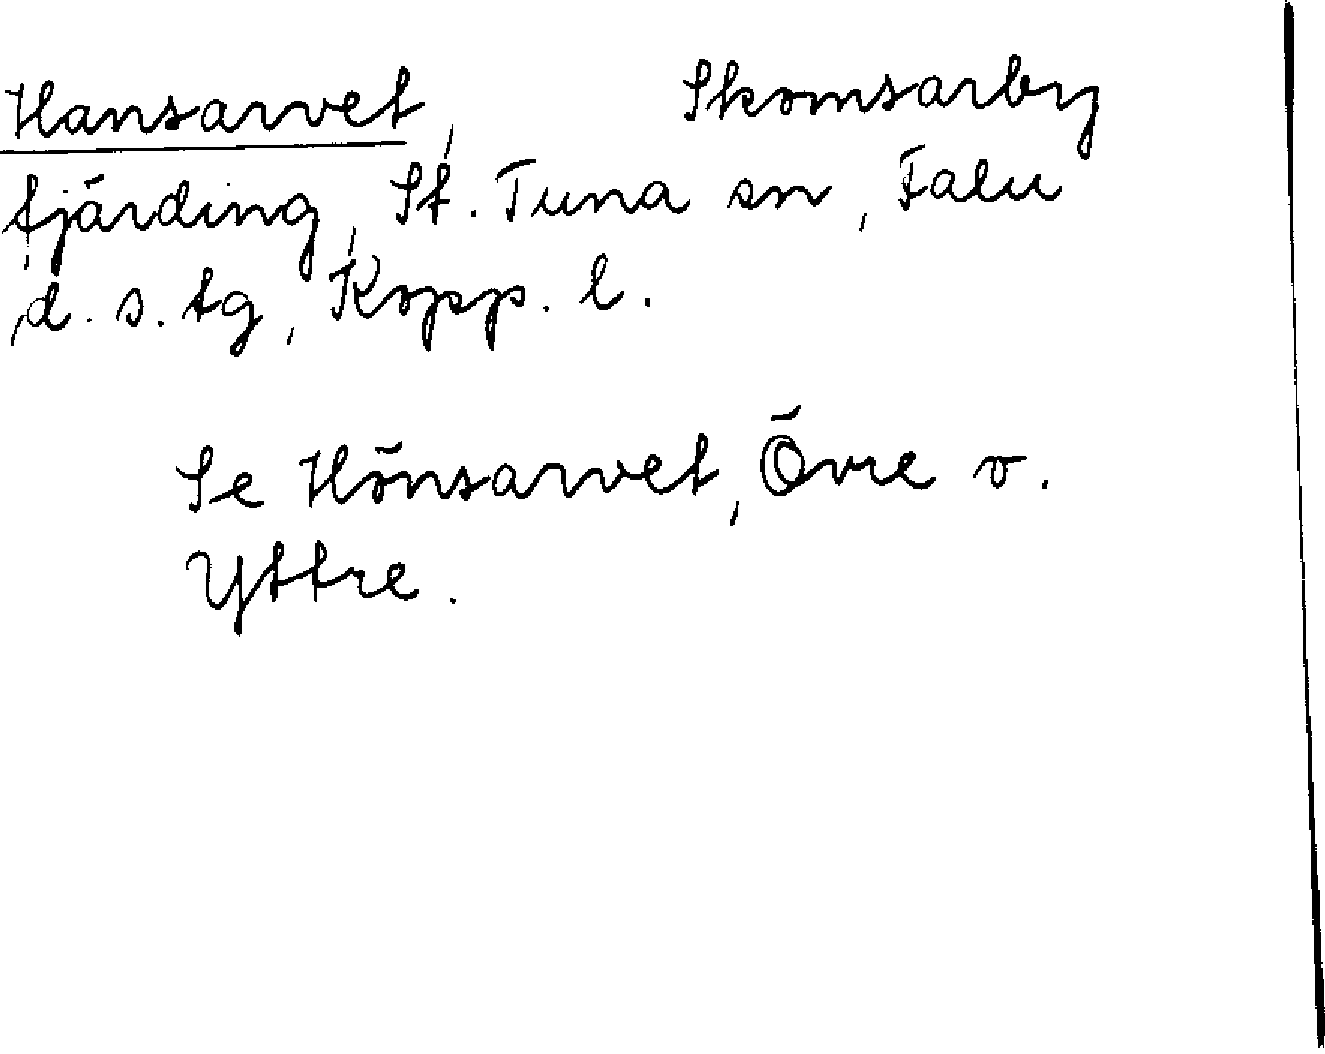 Hansarvet, Skomsarby
fjärding, St. Tuna sn, Falu
d. s. tg, Kopp. l.
Se Hönsarvet, Övre o.
Yttre.